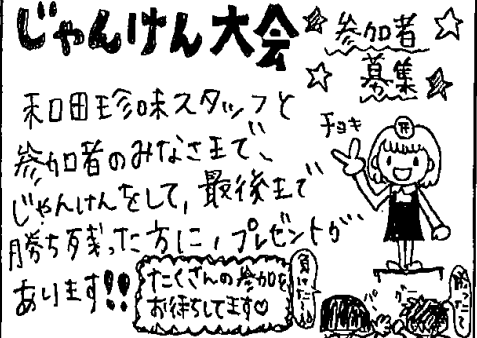 じゃんけん大会
参加者
募集
和田珍味スタッフと
参加者のみなさまで、
じゃんけんをして、最後まで
勝ち残った方に、プレゼントが
あります!!
たくさんの参加を
お待ちしてます♡
チョキ
負けた〜
パー
グー
勝ったて